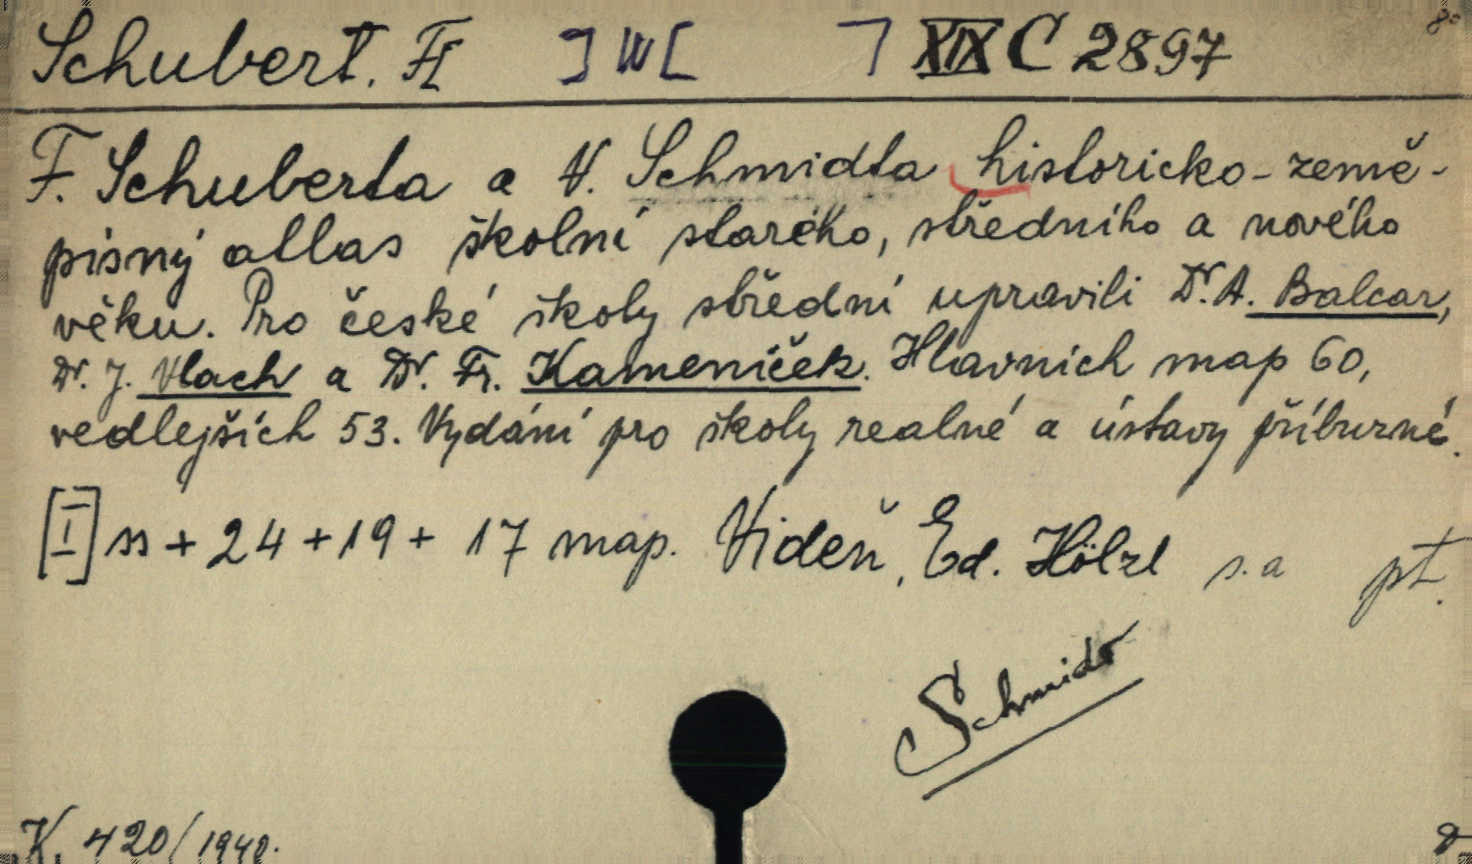 Schubert. Fr ] W [ ] XIX C 2897 8°
F. Schuberta a V. Schmidta historicko-země-
pisný atlas školní starého, středního a nového
věku. Pro české školy střední upravili Dr. A. Balcar,
Dr. J. Vlach a Dr. Fr. Kameníček. Hlavních map 60,
vedlejších 53. Vydání pro školy realné a ústavy příbuzné.
[I] ss + 24 + 19 + 17 map. Videň, Ed. Hölzl s. a pt.
Schmidt
K. 420/1940.